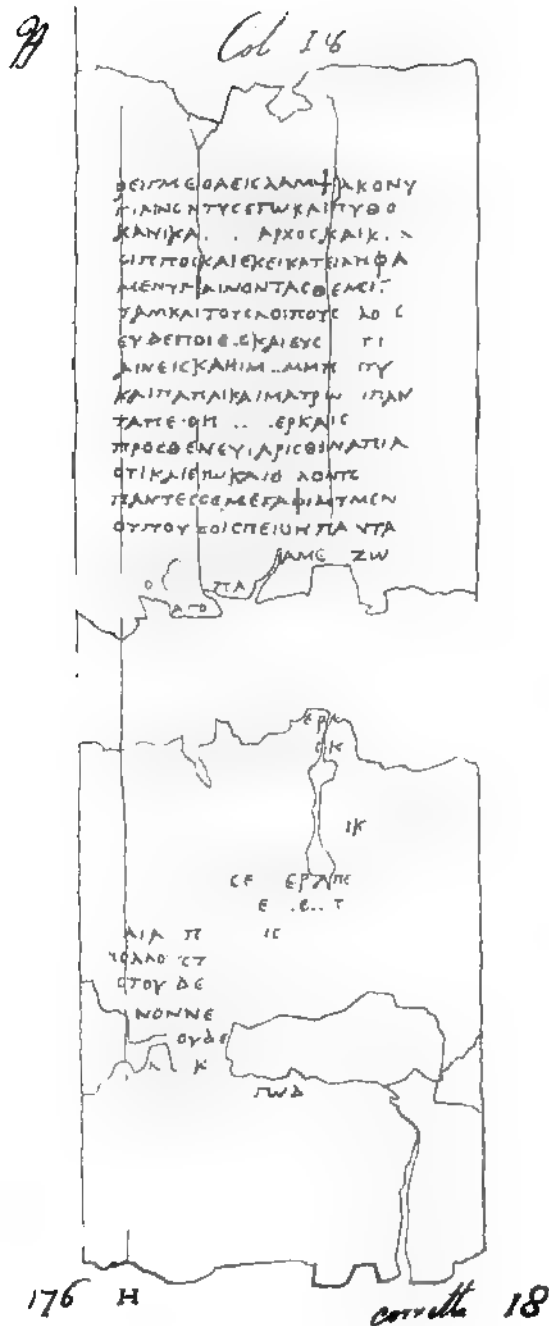 Col 18
ΦΕΙΓΜΕΘΑΕΙCΛΑΜΨΑΚΟΝΥ
ΓΙΑΙΝΟΝΤΥCΕΓΩΚΑΙΠΥΘΟ
ΚΛΝΙΚΑ. . ΑΡΧΟCΚΑΙΚ. Λ
CΙΠΠΟCΚΑΙΕΚΕΙΚΑΤΕΙΛΗΦΑ
ΜΕΝΥΓΙΑΙΝΟΝΤΑCΘΕΜCΙΓ
ΤΑΜΚΑΙΤΟΥCΛΟΙΠΟΥC ΛΟ C
ΕΥΔΕΠΟΙΕ.CΚΑΙΕΥC ΓΙ
ΑΙΝΕΙCΚΑΗΙΜ..ΜΜΗ ΠΥ
ΚΑΙΠΑΠΑΙΚΑΙΜΑΤΡΩ ΙΠΑΝ
ΤΑΠΕ.ΘΗ .. .ΕΡΚΑΙC
ΠΡΟCΘΕΝΕΥΙΑΡΙCΘΙΝΑΠΙΑ
ΟΤΙΚΑΙΕΓΩΚΑΙΟ ΛΟΝΤC
ΠΑΝΤΕCCΕΜΕΓΑΦΙΛΟΥΜΕΝ
ΟΥΠΟΥΤΟΙCΠΕΙΘΗΠΑΝΤΑ
ΑΜΕ ΖΩ
Ο ΠΑ
ΑΠΟ
ΕΡΚ
ΟΚ
ΙΚ
CΕ ΕΡΑΠΕ
Ε .Ε.. Τ
ΑΙΑ Π ΙC
ΠΟΛΛΟ CΤ
CΤΟΥ ΔΕ
ΝΟΝΝΕ
ΟΥΔΕ
Λ Κ
ΓΩΔ
176 H corretta 18